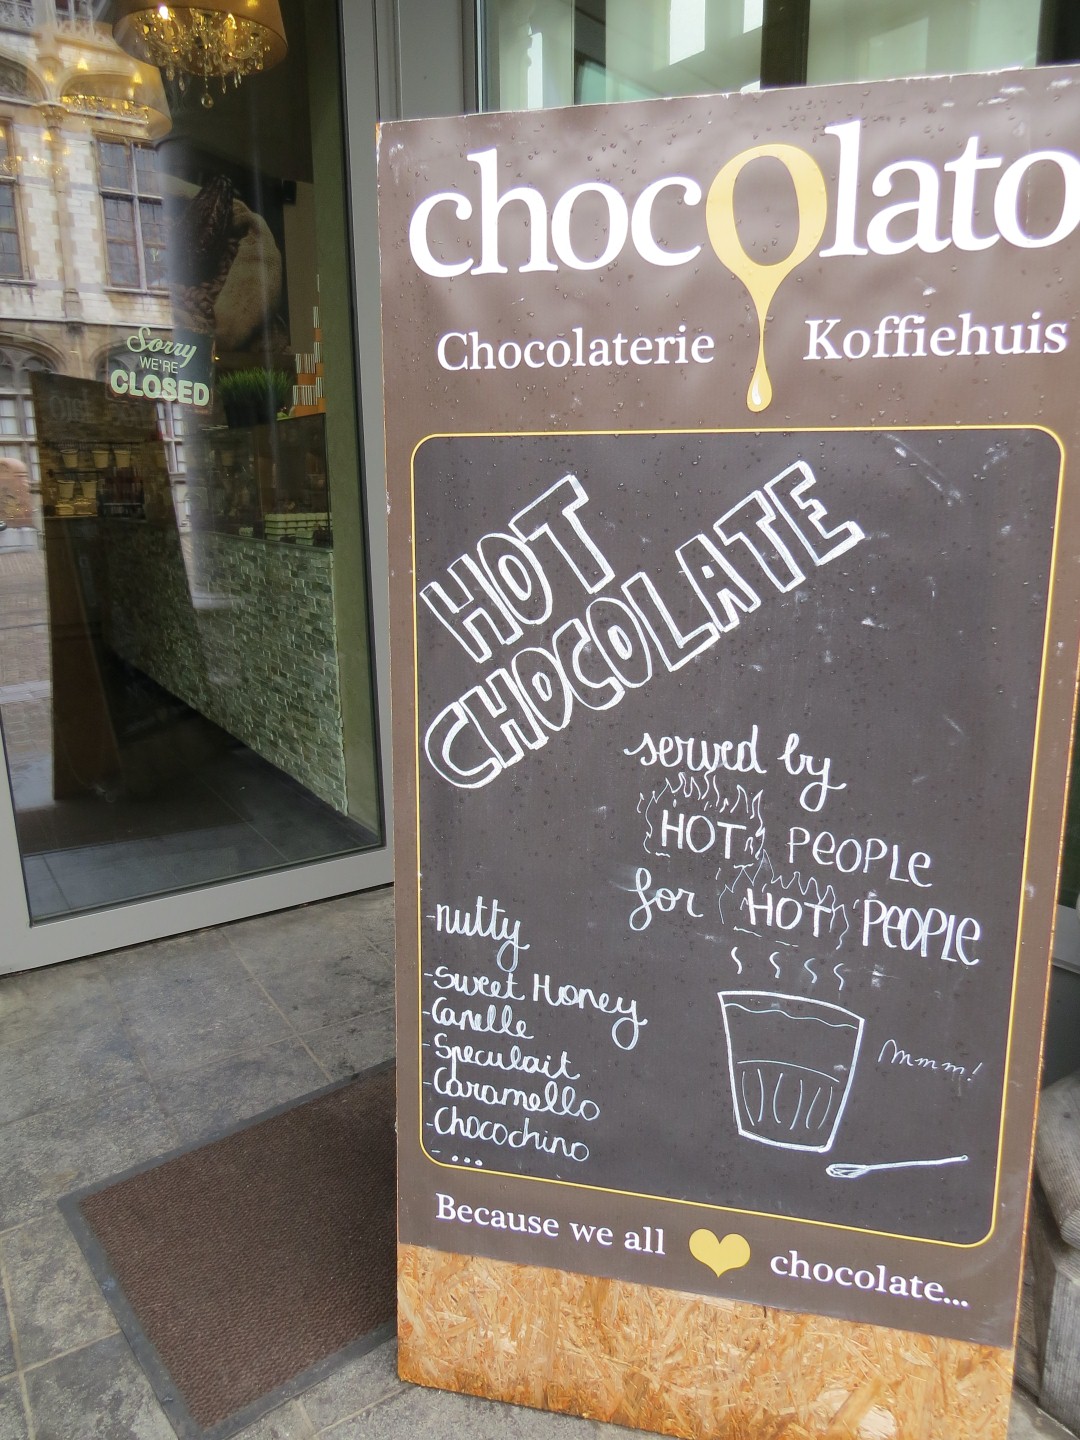 chocolato
Chocolaterie Koffiehuis
Sorry
WE'RE
CLOSED
HOT
CHOCOLATE
served by
HOT PEOPLE
for HOT PEOPLE
-nutty
-Sweet Honey
-Canelle
-Speculait
-Caramello
-Chocochino
-...
Mmm!
Because we all chocolate...